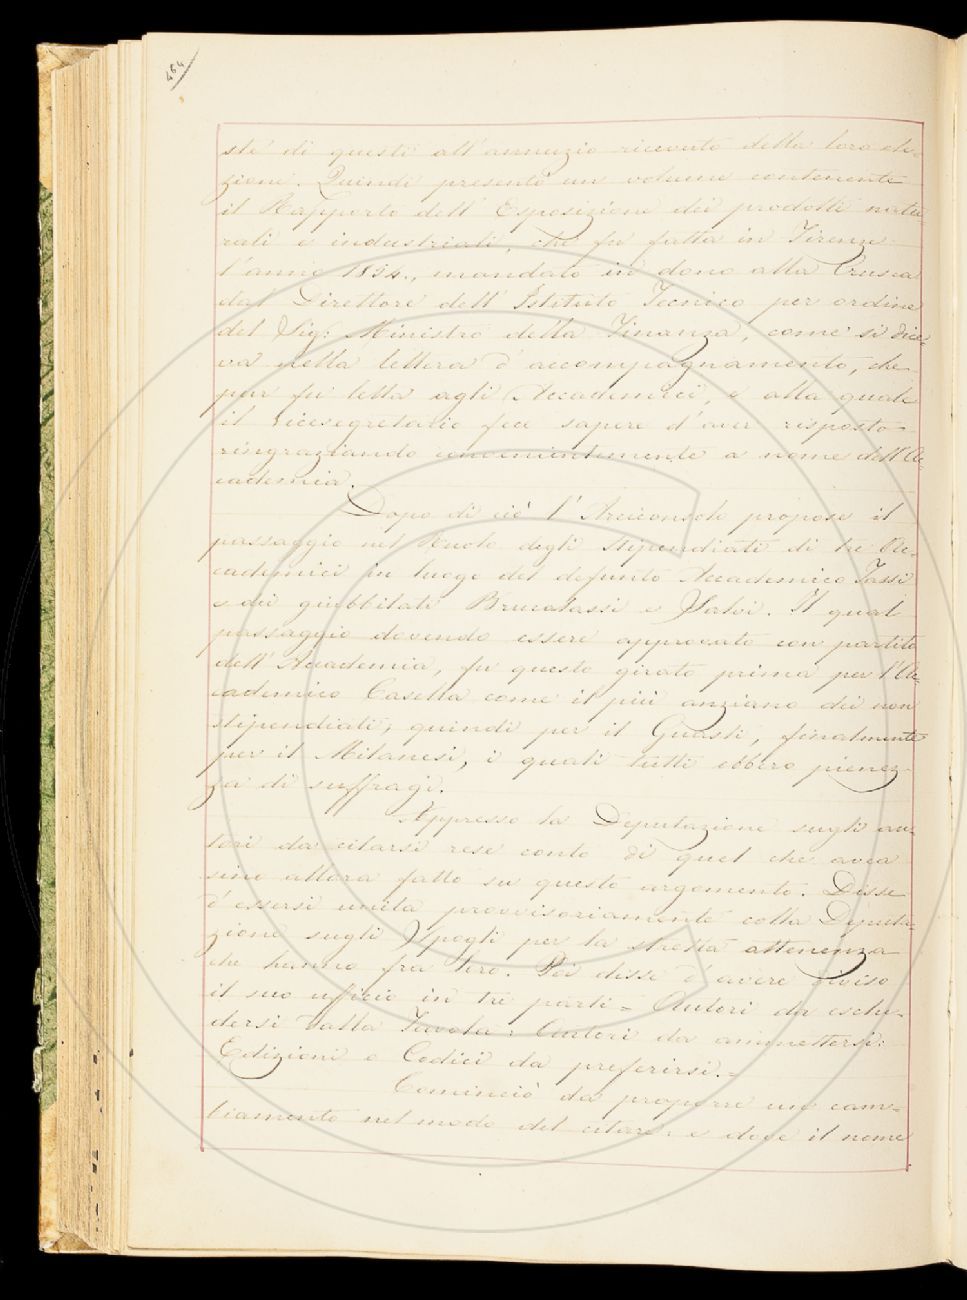 464
ste' di questi all'annuzio ricevuto della loro ele-
zione. Quindi presentò un volume contenente
il Rapporto dell'Esposizione dei prodotti natu
rali e industriali, che fu fatta in Firenze
l'anno 1854., mandato in dono alla Crusca
dal Direttore dell'Istituto Tecnico per ordine
del Sig: Ministro della Finanza, come si dice-
va nella lettera d'accompagnamento, che
pur fu letta agli Accademici, e alla quale
il Vicesegretario fece sapere d'aver risposto
ringraziando convenientemente a nome dell'Ac-
cademia.
Dopo di ciò l'Arciconsolo propose il
passaggio nel Ruolo degli stipendiati di tre Ac-
cademici in luogo del defunto Accademico Tassi
e dei giubbilati Brucalassi e Salvi. Il qual
passaggio dovendo essere approvato con partito
dell'Accademia, fu questo girato prima per l'Ac-
cademico Casella come il più anziano dei non
stipendiati, quindi per il Guasti, finalmente
per il Milanesi, i quali tutti ebbero pienez-
za di suffragj.
Appresso la Deputazione sugli au-
tori da citarsi rese conto di quel che avea
sino allora fatto su questo argomento. Disse
d'essersi unita provvisoriamente colla Deputa-
zione sugli Spogli per la stretta attenenza
che hanno fra loro. Poi disse d'avere diviso
il suo ufficio in tre parti = Autori da esclu-
dersi dalla Tavola: Autori da ammettersi:
Edizioni e Codici da preferirsi. =
Cominciò da proporre un cam-
biamento nel modo del citare, e dove il nome